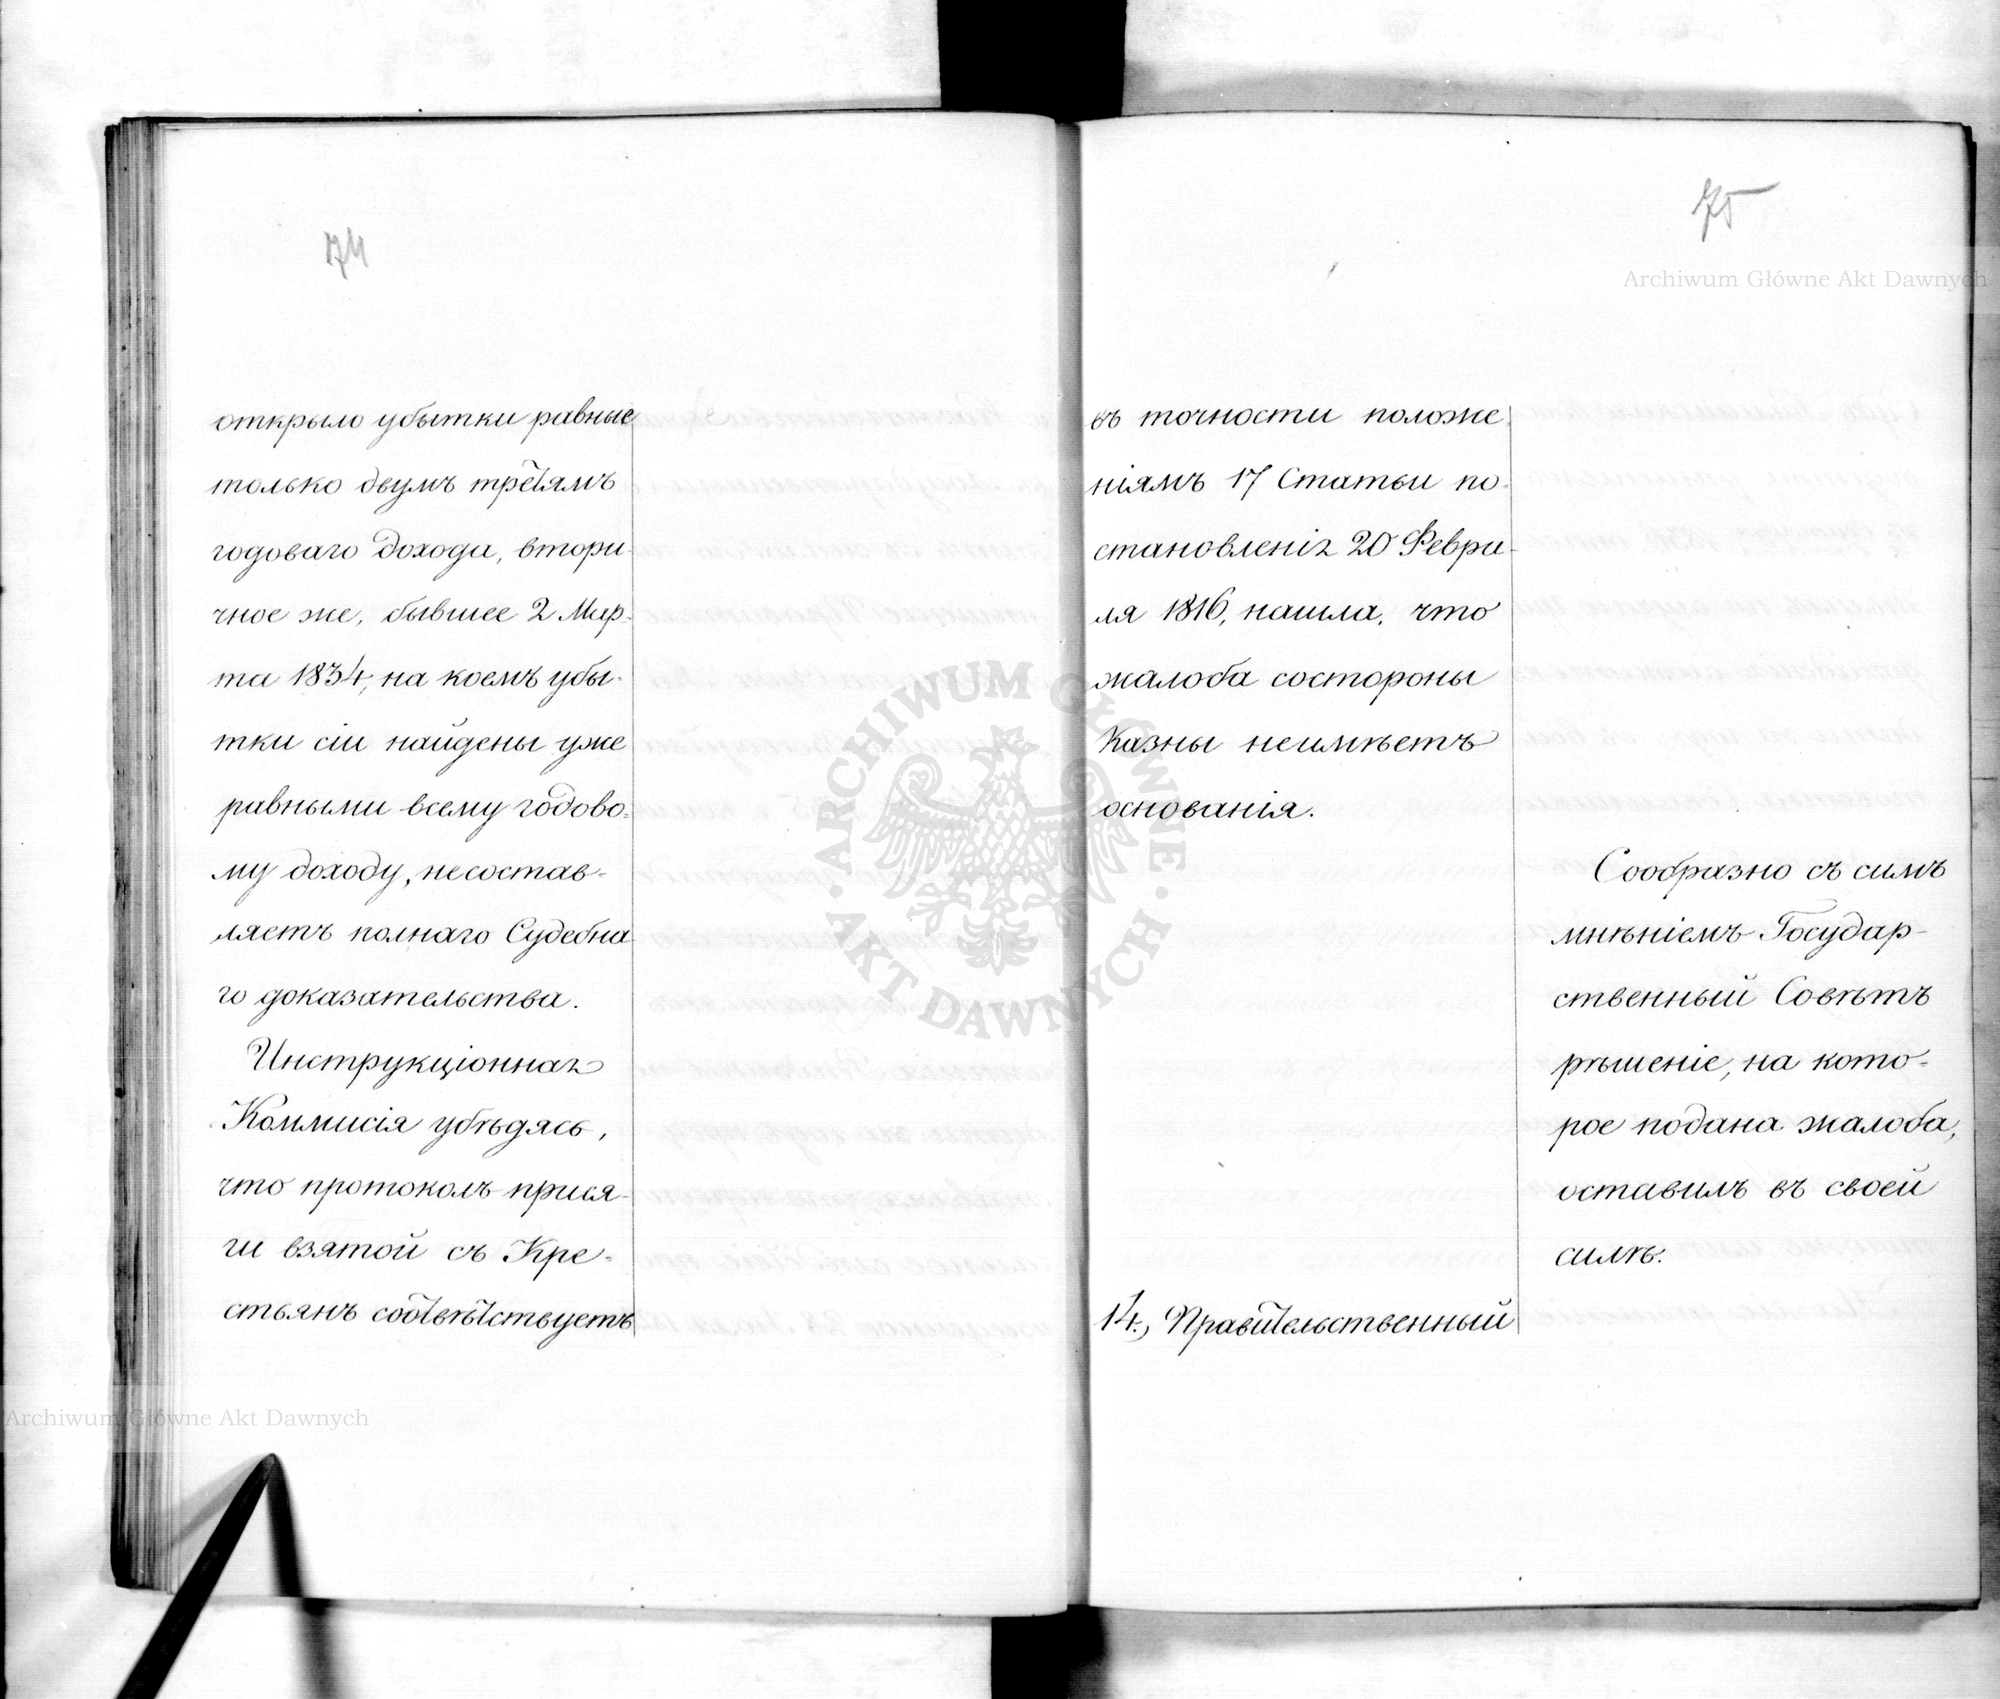 74
открыло убытки равные
только двумъ третямъ
годоваго дохода, втори-
чное же, бывшее 2 Мар-
та 1834, на коемъ убы-
тки сіи найдены уже
равными всему годово-
му доходу, несостав-
ляетъ полнаго Судебна
го доказательства.
Инструкціонная
Коммисія убѣдясь,
что протоколъ прися-
ги взятой съ Кре-
стьянъ соотвѣтствуетъ
75
въ точности положе-
ніямъ 17 Статьи по-
становленія 20 Февра-
ля 1816, нашла, что
жалоба состороны
Казны неимѣетъ
основанія.
Сообразно съ симъ
мнѣніемъ Государ-
ственный Совѣтъ
рѣшеніе, на кото-
рое подана жалоба,
оставилъ въ своей
силѣ.
14., Правительственный
Archiwum Główne Akt Dawnych
Archiwum Główne Akt Dawnych
ARCHIWUM GŁÓWNE
AKT DAWNYCH